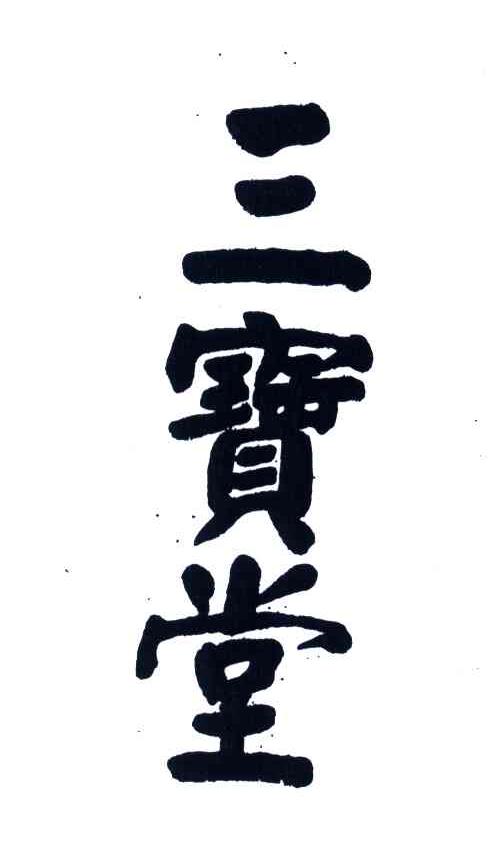 三寶堂